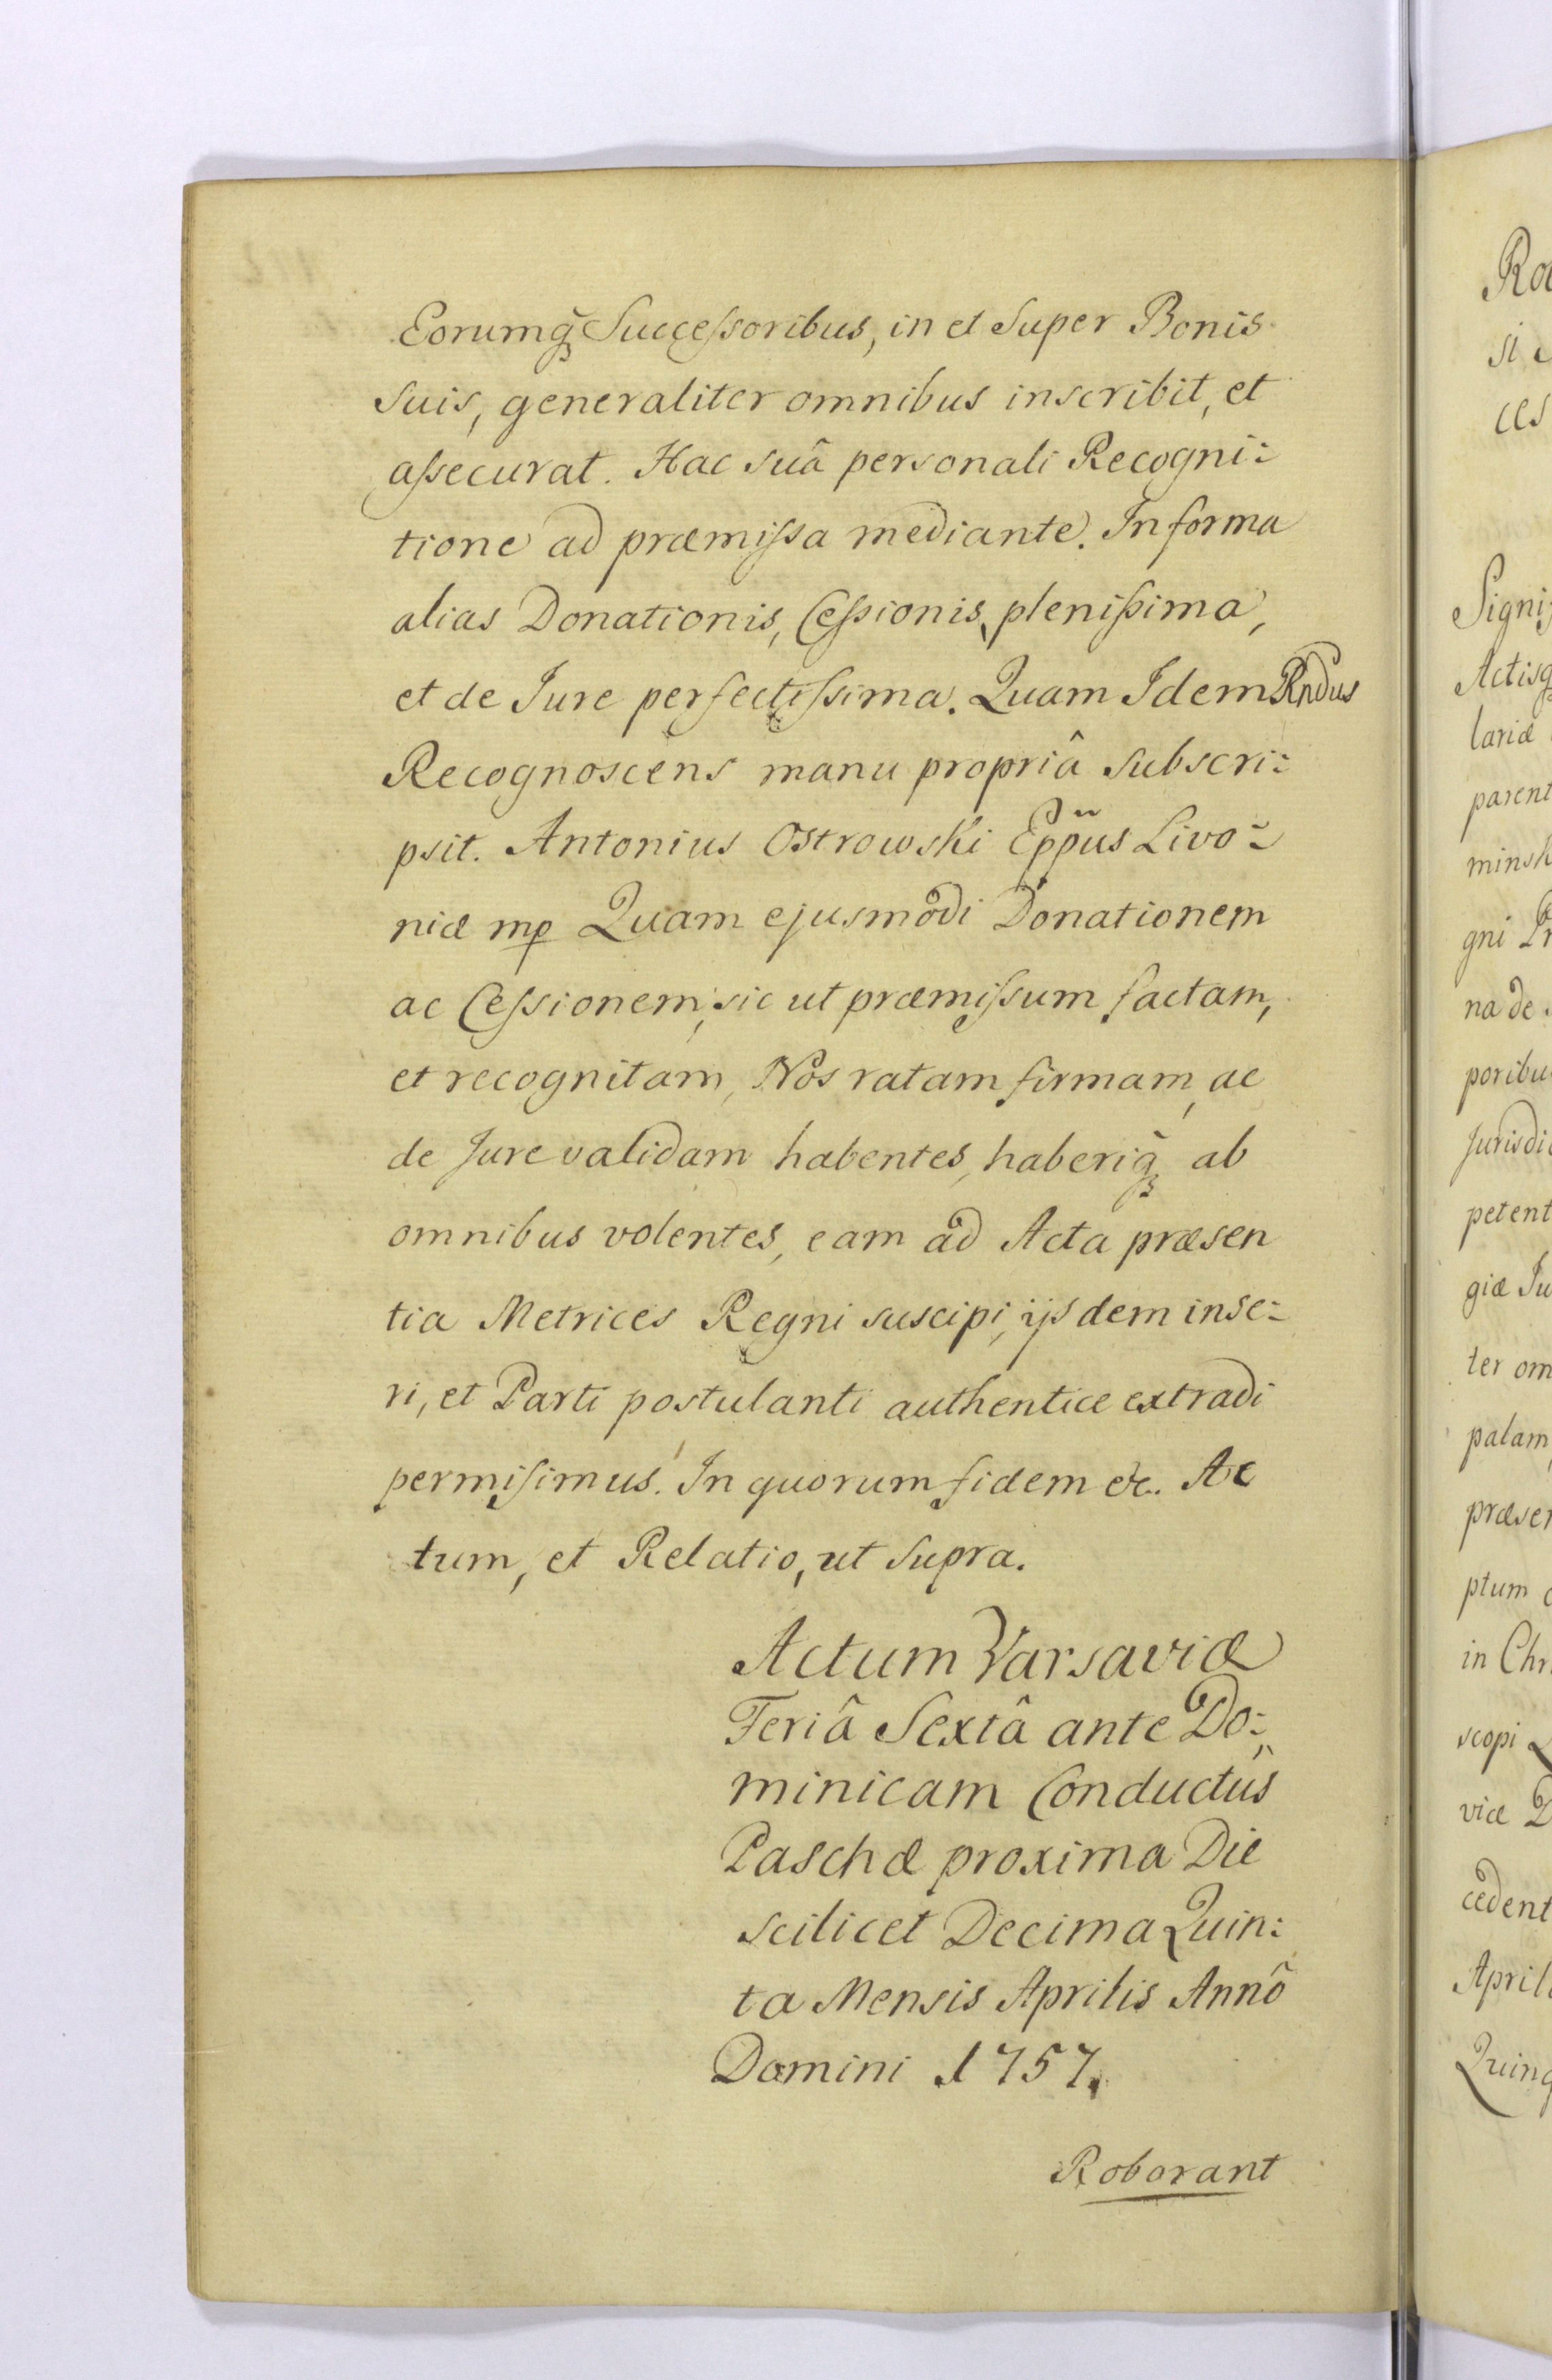 Eorumq̃ Succeſsoribus, in et Super Bonis
suis, generaliter omnibus inscribit, et
aſsecurat. Hac suâ personali Recogni:
tione ad præmiſsa mediante. In forma
alias Donationis, Ceſsionis, pleniſsima,
et de Jure perfectiſsima. Quam Idem Rndus
Recognoscens manu propriâ subscri:
psit. Antonius Ostrowski Eppũs Livo:
niæ mp Quam ejusmodi Donationem
ac Ceſsionem, sic ut præmiſsum factam,
et recognitam, Nos ratam firmam, ac
de Jure validam habentes, haberiq̃ ab
omnibus volentes, eam ad Acta præsen
tia Metrices Regni suscipi, ijsdem inse:
ri, et Parti postulanti authentice extradi
permiſimus. In quorum fidem &c. Ac
tum, et Relatio, ut supra.
Actum Varsaviæ
Feriâ Sextâ ante Do:
minicam Conductûs
Paschæ proxima Die
scilicet Decima Quin:
ta Mensis Aprilis Annô
Domini 1757.
Roborant
Ro
si
ces
Signif
Actisq
lariæ
parent
minsk
gni Pr
na de
poribu
Jurisdic
petent
giæ Ju
ter om
palam
præsen
ptum
in Chr
scopi
viæ D
cedent
Aprili
Quinq